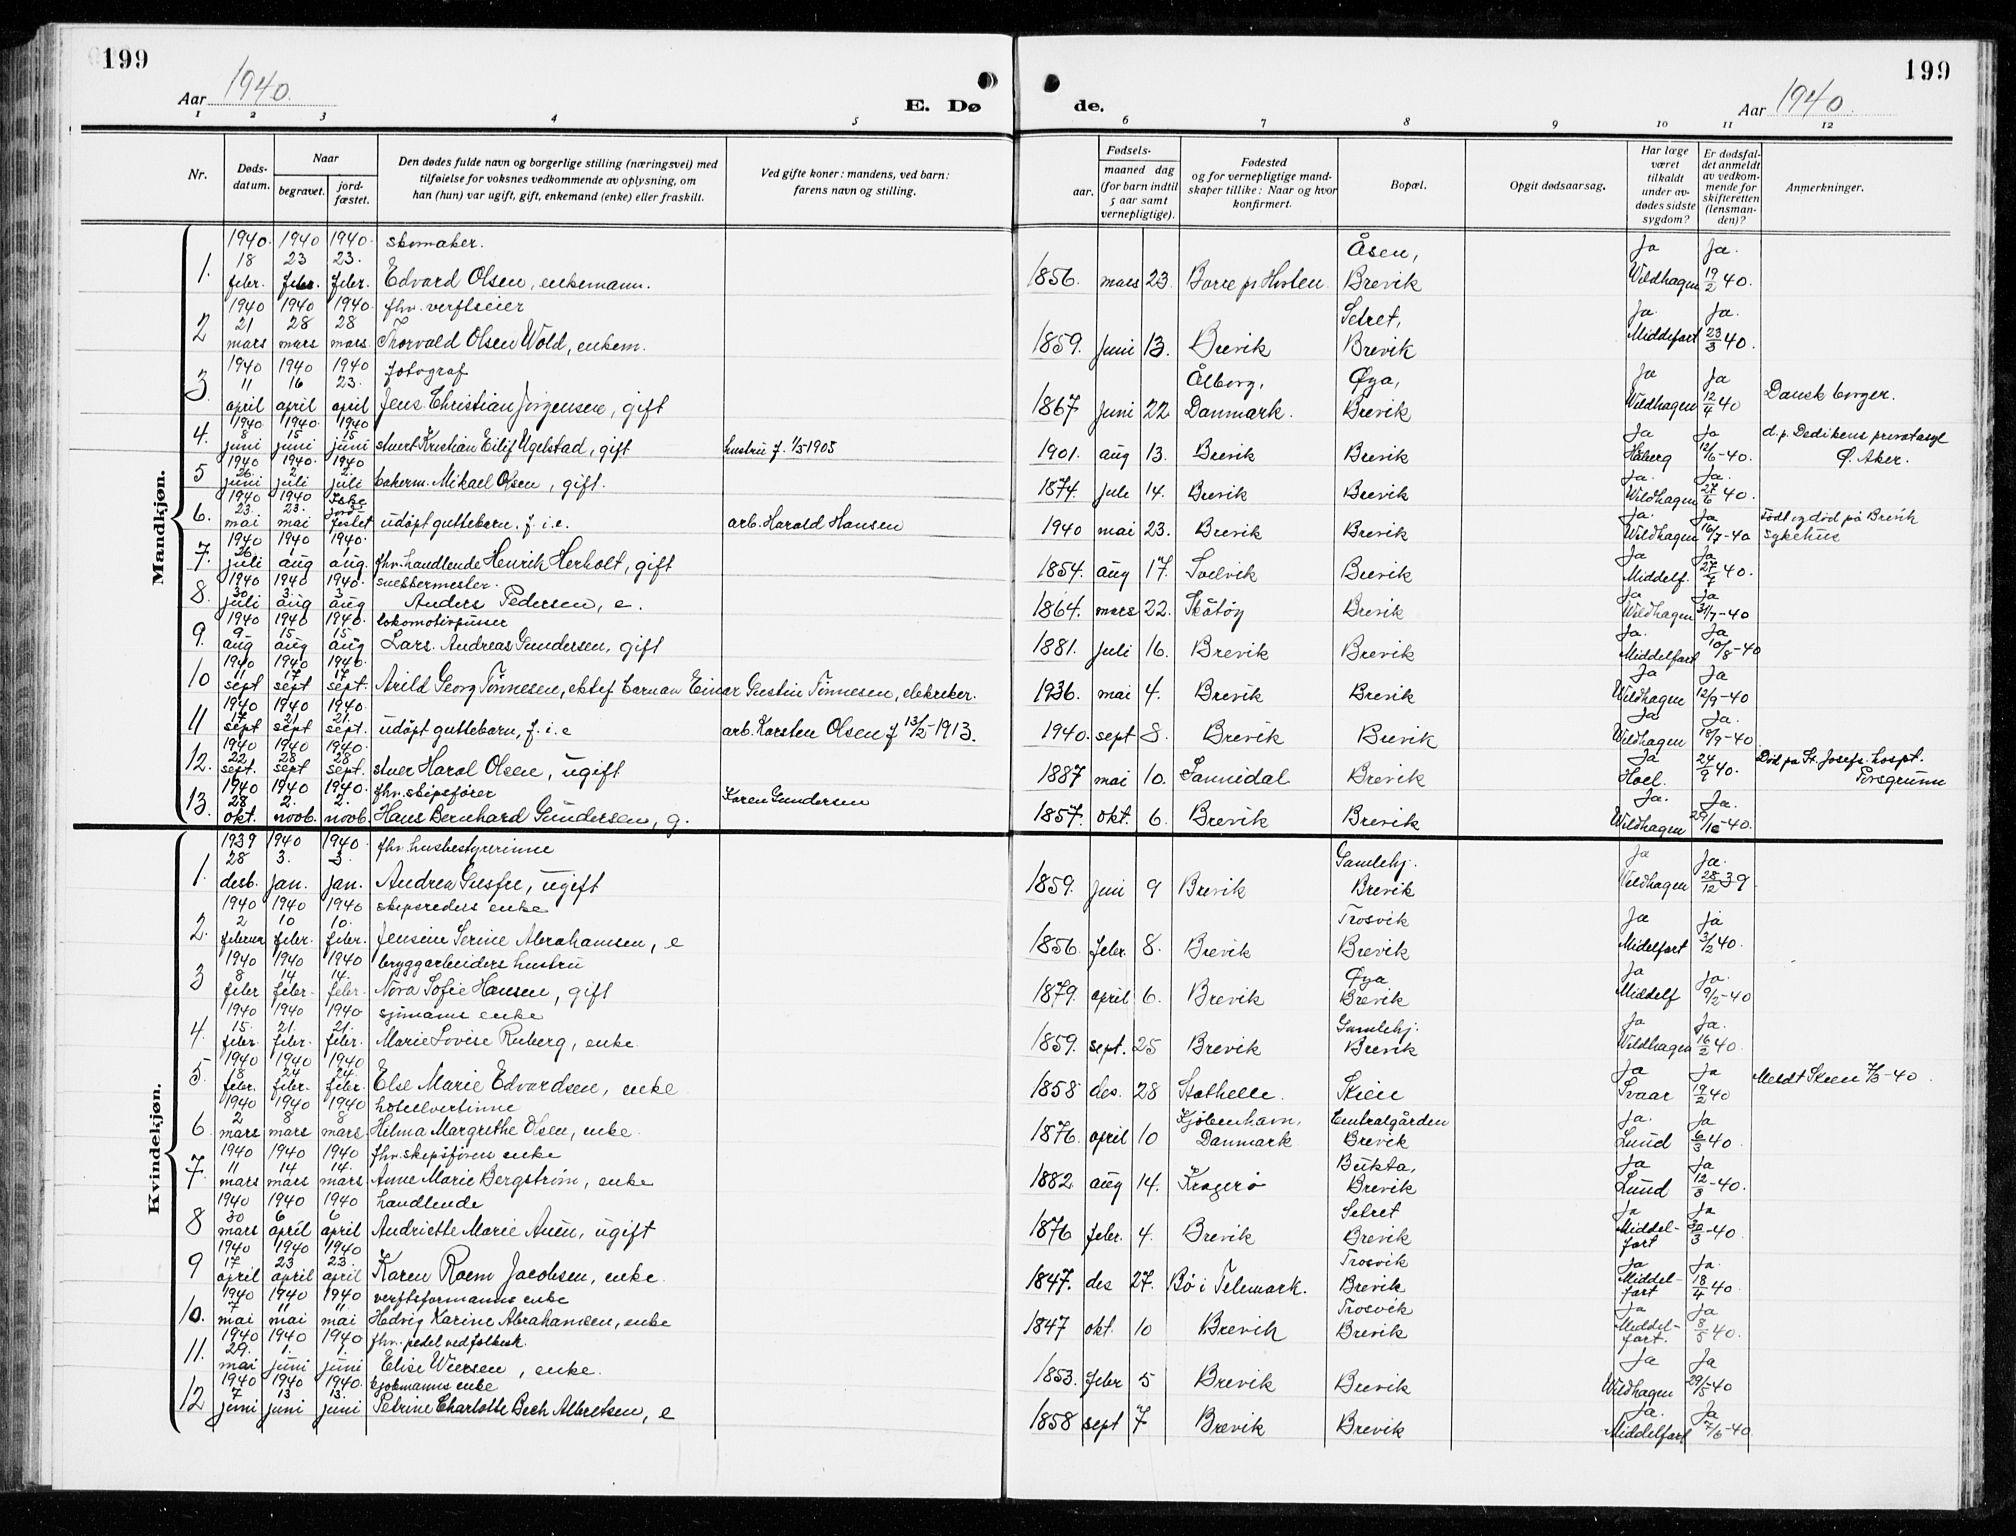 199
199
Aar 1940.
E. Dø
de.
Aar 1940.
1 2 3 4 5 6 7 8 9 10 11 12
Nr. Døds-datum. Naar begravet. jord-fæstet. Den dødes fulde navn og borgerlige stilling (næringsvei) med tilføielse for voksnes vedkommende av oplysning, om han (hun) var ugift, gift, enkemand (enke) eller fraskilt. Ved gifte koner: mandens, ved barn: farens navn og stilling. Fødsels- aar. maaned dag (for barn indtil 5 aar samt vernepligtige). Fødested og for vernepligtige mandskaper tillike: Naar og hvor konfirmert. Bopæl. Opgit dødsaarsag. Har læge været tilkaldt under avdødes sidste sygdom? Er dødsfaldet anmeldt av vedkommende for skifteretten (lensmanden)? Anmerkninger.
Mandkjøn.
1. 1940 18 febr. 1940 23 febr. 1940 23. febr. skomaker. Edvard Olsen, enkemann. 1856. mars 23. Borre pr Horten Åsen, Brevik Ja Wildhagen Ja. 19/2 40.
2 1940 21 mars 1940 28 mars 1940. 28 mars. fhv. verftseier Thorvald Olsen Wold, enkem. 1859. juni 13. Brevik Setret, Brevik Ja. Middelfart Ja. 23/3 40.
3. 1940 11 april 1940 16 april 1940 23. april fotograf Jens Christian Jørgensen, gift 1867 juni 22 Ålborg, Danmark. Øya, Brevik Ja Wildhagen Ja 12/4 40 Dansk borger.
4. 1940 8 juni 1940. 15 juni 1940 15 juni stuert Kristian Eilif Ugelstad, gift hustru f. 1/5 1905 1901. aug 13. Brevik Brevik Ja Håberg Ja 12/6-40. d. p. Dedikens privatasyl Ø. Aker.
5 1940 26. juni 1940. 2 juli 1940 2. juli bakerm. Mikael Olsen, gift. 1874. juli 14. Brevik Brevik Ja. Wildhagen Ja. 27/6 40.
6. 1940 23. mai 1940 23. mai Ikke jord-festet udøpt guttebarn, f. i. e. arb. Harald Hansen 1940 mai 23. Brevik Brevik Ja. Wildhagen Ja 16/7-40 Født og død på Brevik sykehus
7. 1940 26. juli 1940 1 aug 1940. 1 aug. fhv. handlende Henrik Herholt, gift 1854. aug 17. Svelvik Brevik Ja Middelf. Ja 27/7 40.
8. 1940 30 juli 1940 3. aug 1940. 3 aug snekkermester. Anders Pedersen, e. 1864. mars 22. Skåtøy Brevik Ja Wildhagen Ja 31/7-40
9. 1940 9- aug 1940 15 aug 1940. 15 aug lokomotivpusser Lars Andreas Gundersen, gift 1881. juli 16. Brevik Brevik Ja. Middelfart Ja 10/8-40
10 1940 11 sept 1940 17 sept 1940. 17 sept. Arild Georg Tønnesen, ektef. barn av Einar Gustin Tønnesen, elektriker. 1936. mai 4. Brevik Brevik Ja Wildhagen Ja 12/9-40
11 1940 17 sept 1940 21 sept 1940. 21. sept. udøpt guttebarn, f. i. e arb. Karsten Olsen f 13/2-1913. 1940. sept 8. Brevik Brevik Ja Wildhagen Ja. 18/9-40
12. 1940 22 sept. 1940 28 sept 1940. 28 sept. stuer Harol Olsen, ugift 1887 mai 10. Sannidal Brevik Ja Hoel. 24/9 40. Død på St. Josefs. hospt. Porsgrunn
13. 1940 28 okt. 1940 2. novb. 1940. 2. novb. fhv. skipsfører Hans Bernhard Gundersen, g. Karen Gundersen 1857. okt. 6. Brevik Brevik Ja. Wildhagen Ja. 29/10-40.
Kvindekjøn.
1. 1939 28 desb. 1940 3. jan. 1940. 3. jan. fhv. husbestyrerinne Andrea Gusfre, ugift 1859. juni 9 Brevik Gamlehj. Brevik Ja Wildhagen Ja. 28/12 39.
2. 1940 2 februar 1940 10 febr. 1940 10. febr. skipsreders enke Jensine Serine Abrahamsen, e 1856. febr. 8. Brevik Trosvik Brevik Ja Midelfart Ja 3/12 40.
3 1940 8 febr 1940 14 febr. 1940 14. febr. bryggarbeiders hustru Nora Sofie Hansen, gift 1879. april 6. Brevik Øya Brevik Ja Middelf Ja. 9/2-40
4. 1940 15. febr. 1940 21. febr. 1940 21. febr. sjømanns enke Marie Lovise Ruberg, enke. 1859. sept. 25 Brevik Gamlehj. Brevik Ja Wildhagen Ja. 16/2 40.
5. 1940 18 febr. 1940 24 febr. 1940 24. febr. Else Marie Edvardsen, enke 1858 des. 28 Stathelle. Skien Ja Svaar Ja 19/2 40 Meldt Skien 7/3-40
6 1940 2 mars 1940 8 mars 1940 8 mars hotellvertinne Helma Margrethe Olsen, enke. 1876. april 10 Kjøbenhavn, Danmark Centralgården Brevik Ja. Lund Ja 6/3 40.
7. 1940 11 mars 1940 14 mars 1940 14. mars. fhv. skipsførers enke Anne Marie Bergstrøm, enke 1882. aug 14. Kragerø Bukta, Brevik Ja Lund Ja 12/3-40.
8 1940 30 mars 1940 6 april 1940 6 april handlende Andriette Marie Auen, ugift 1876 febr. 4. Brevik Setret Brevik Ja Middel-fart Ja 30/3-40
9 1940 17 april 1940 23 april 1940 23. april Karen Roem Jacobsen, enke. 1847. des 27. Bø i Telemark. Trosvik Brevik Ja Middel-fart Ja 18/4 40.
10. 1940 7 mai 1940 11 mai 1940 11 mai verftsformanns enke Hedvig Karine Abrahamsen, enke 1847 okt. 10 Brevik Trosvik Brevik Ja Middel-fart. Ja 8/5 40.
11. 1940 29. mai 1940 1. juni 1940. 1. juni fhv. pedel ved folkesk. Elise Wiersen, enke. 1853. febr 5 Brevik Brevik Ja Wildhagen Ja 29/5-40
12 1940 7 juni 1940 13 juni 1940. 13. juni kjøbmanns enke Petrine Charlotte Bech Albretsen, e 1858 sept 7 Brevik Brevik Ja. Middelfart Ja 7/6-40